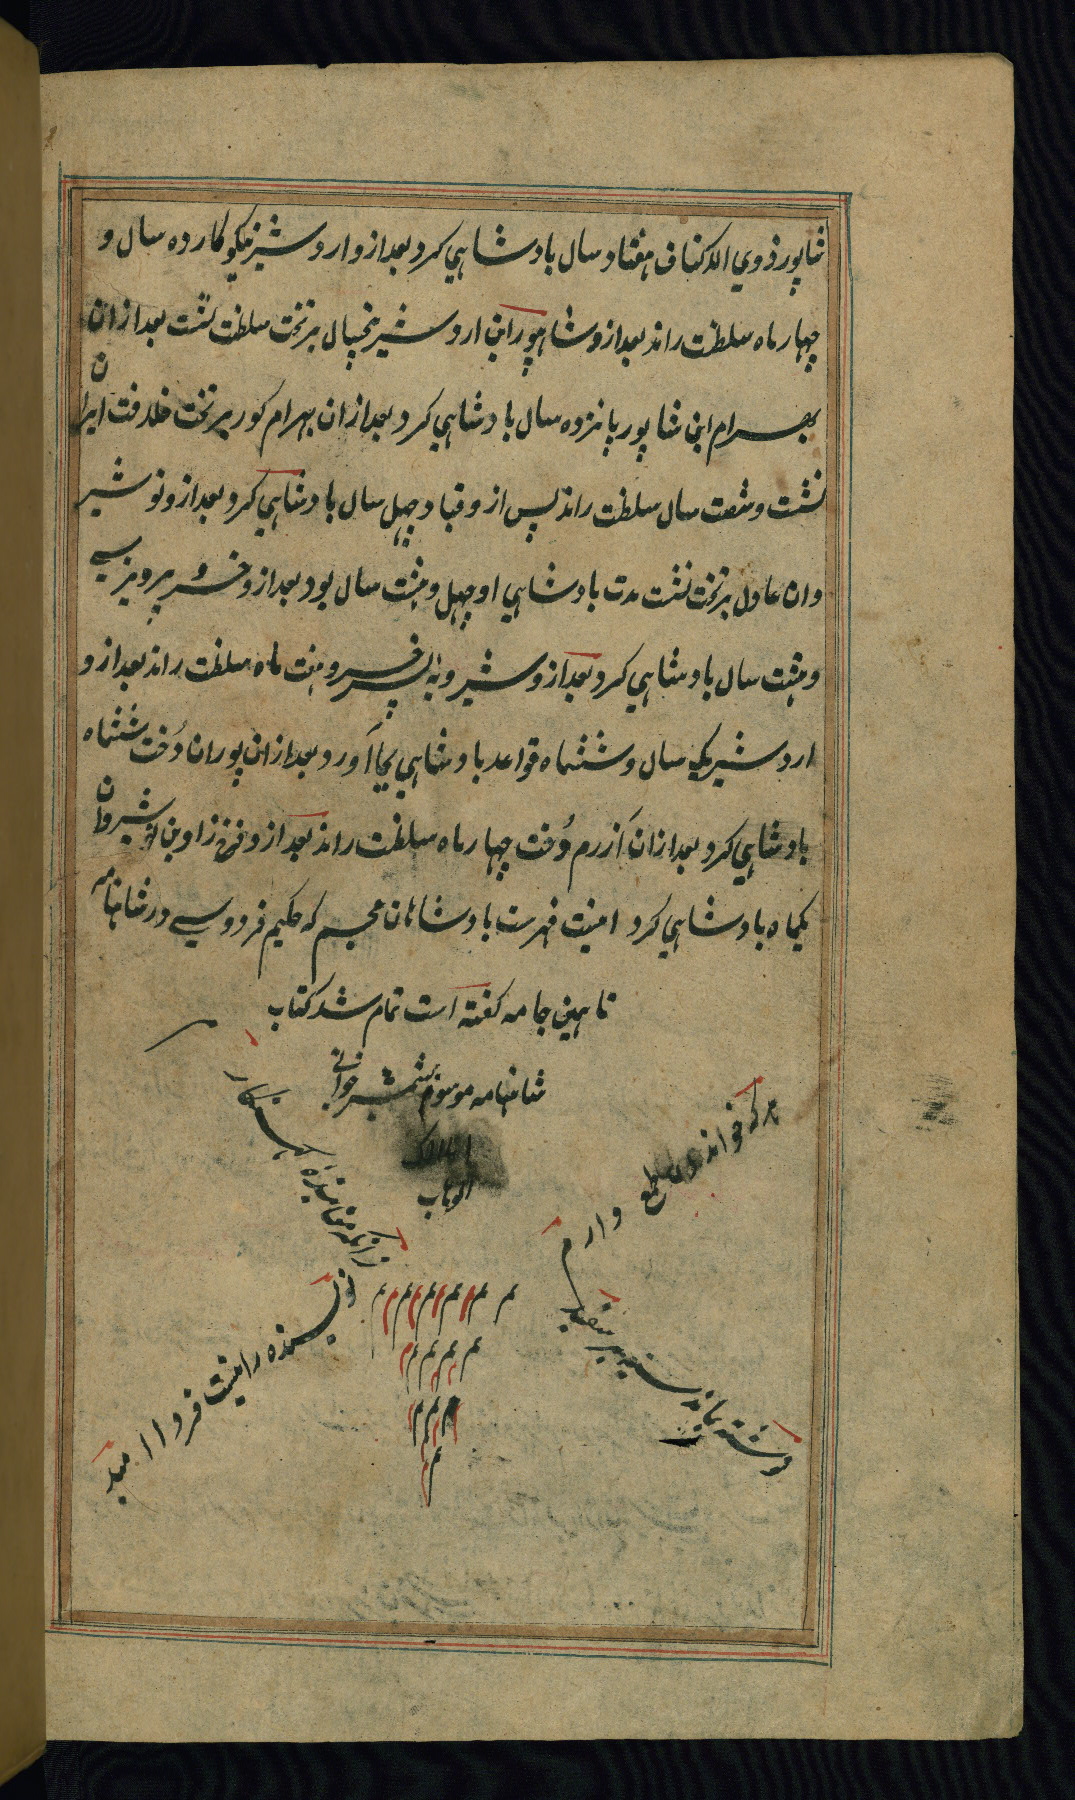 شاپور ذوي الاكتاف هفتاد سال بادشاهي كرد بعد ازو اردشير نيكوكار ده سال و
چهار ماه سلطنت راند بعد ازو شاهپور ابن اردشير پنجسال بر تخت سلطنت نشت بعد ازان
بهرام ابن شاپور پانزده سال بادشاهي كرد بعد ازان بهرام كور بر تخت خلافت ايران
نشت و شصت سال سلطنت راند پس از و قباد چهل سال بادشاهي كرد بعد ازو نوشير
وان عادل بر تخت نشت مدت بادشاهي او چهل و هشت سال بود بعد ازو خسرو پرويز سي
و هشت سال بادشاهي كرد بعد ازو شيرويه پسر خسرو هفت ماه سلطنت راند بعد ازو
اردشير يك سال و ششماه قواعد بادشاهي بجا آورد بعد ازان پوران دُخت ششماه
بادشاهي كرد بعد ازان آزرم دُخت چهار ماه سلطنت راند بعد ازو فرخ زاد بن نوشيروان
يكماه بادشاهي كرد اينست فهرست بادشاهان عجم كه حكيم فردوسي در شاهنامه
تا همين جا مه كفته است تمام شد كتاب
شاهنامه موسوم بشمشير خواني
الملك
الوهاب
هر كه خواند دعا طمع دارم
زانكه من بنده كنهكار
نوشته بماند سيه بر سفيد
نويسنده را نيست فردا اميد
م م م م م م
م م م م
م م م
م